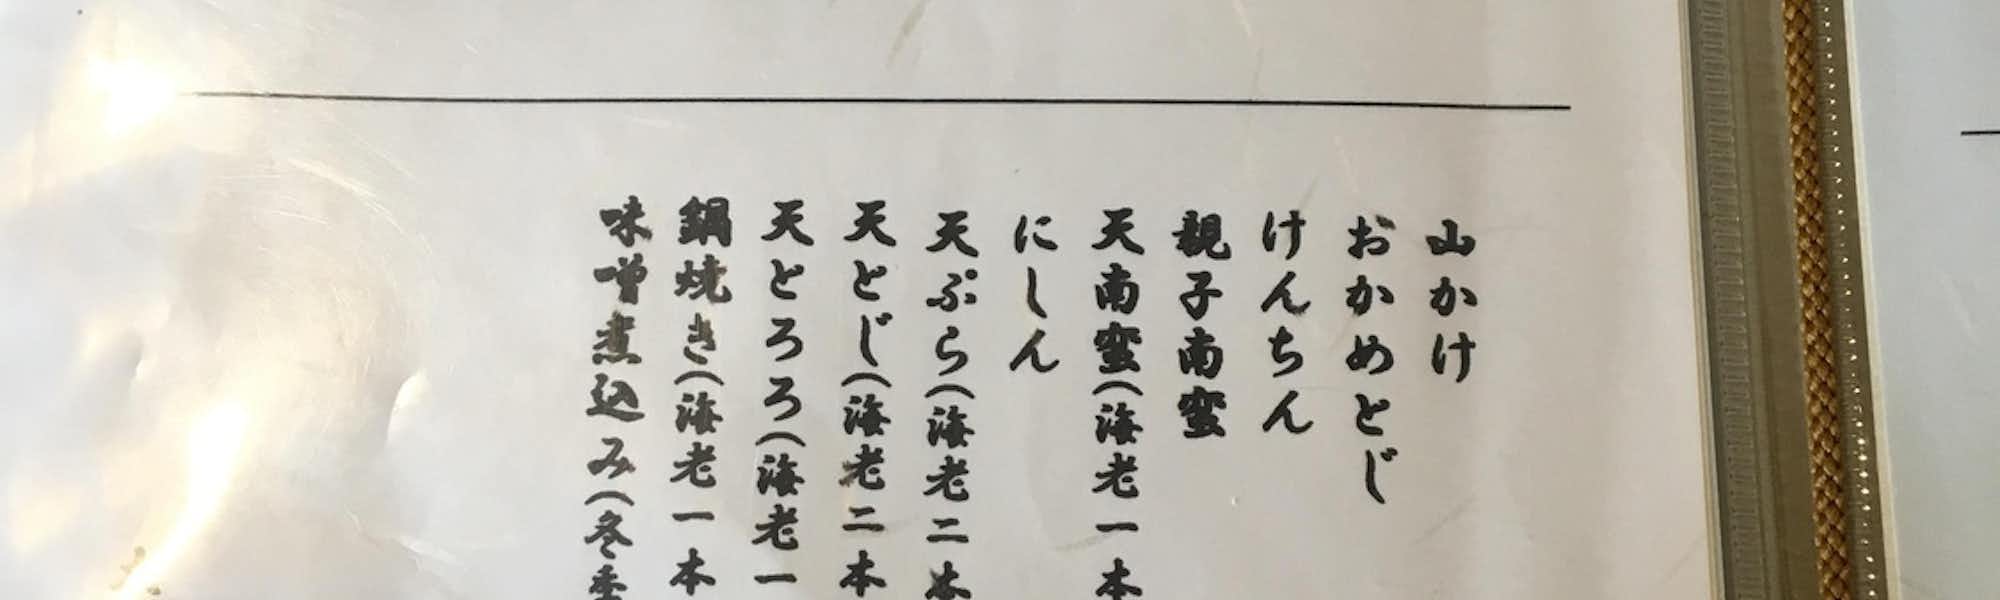 山かけ
おかめとじ
けんちん
親子南蛮
天南蛮(海老一本
にしん
天ぷら(海老二本
天とじ(海老二本
天とろろ(海老一
鍋焼き(海老一本
味噌煮込み(冬季